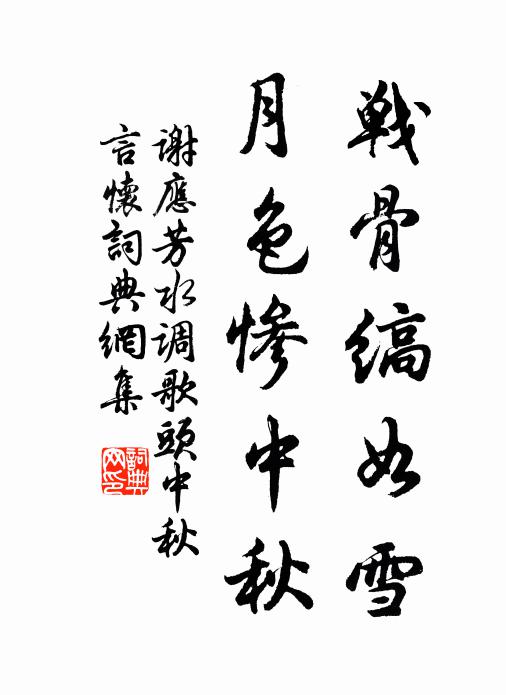 戦骨縞如雪
月色惨中秋
謝應芳水调歌頭中秋
言懷詞典網集
詞典
网印